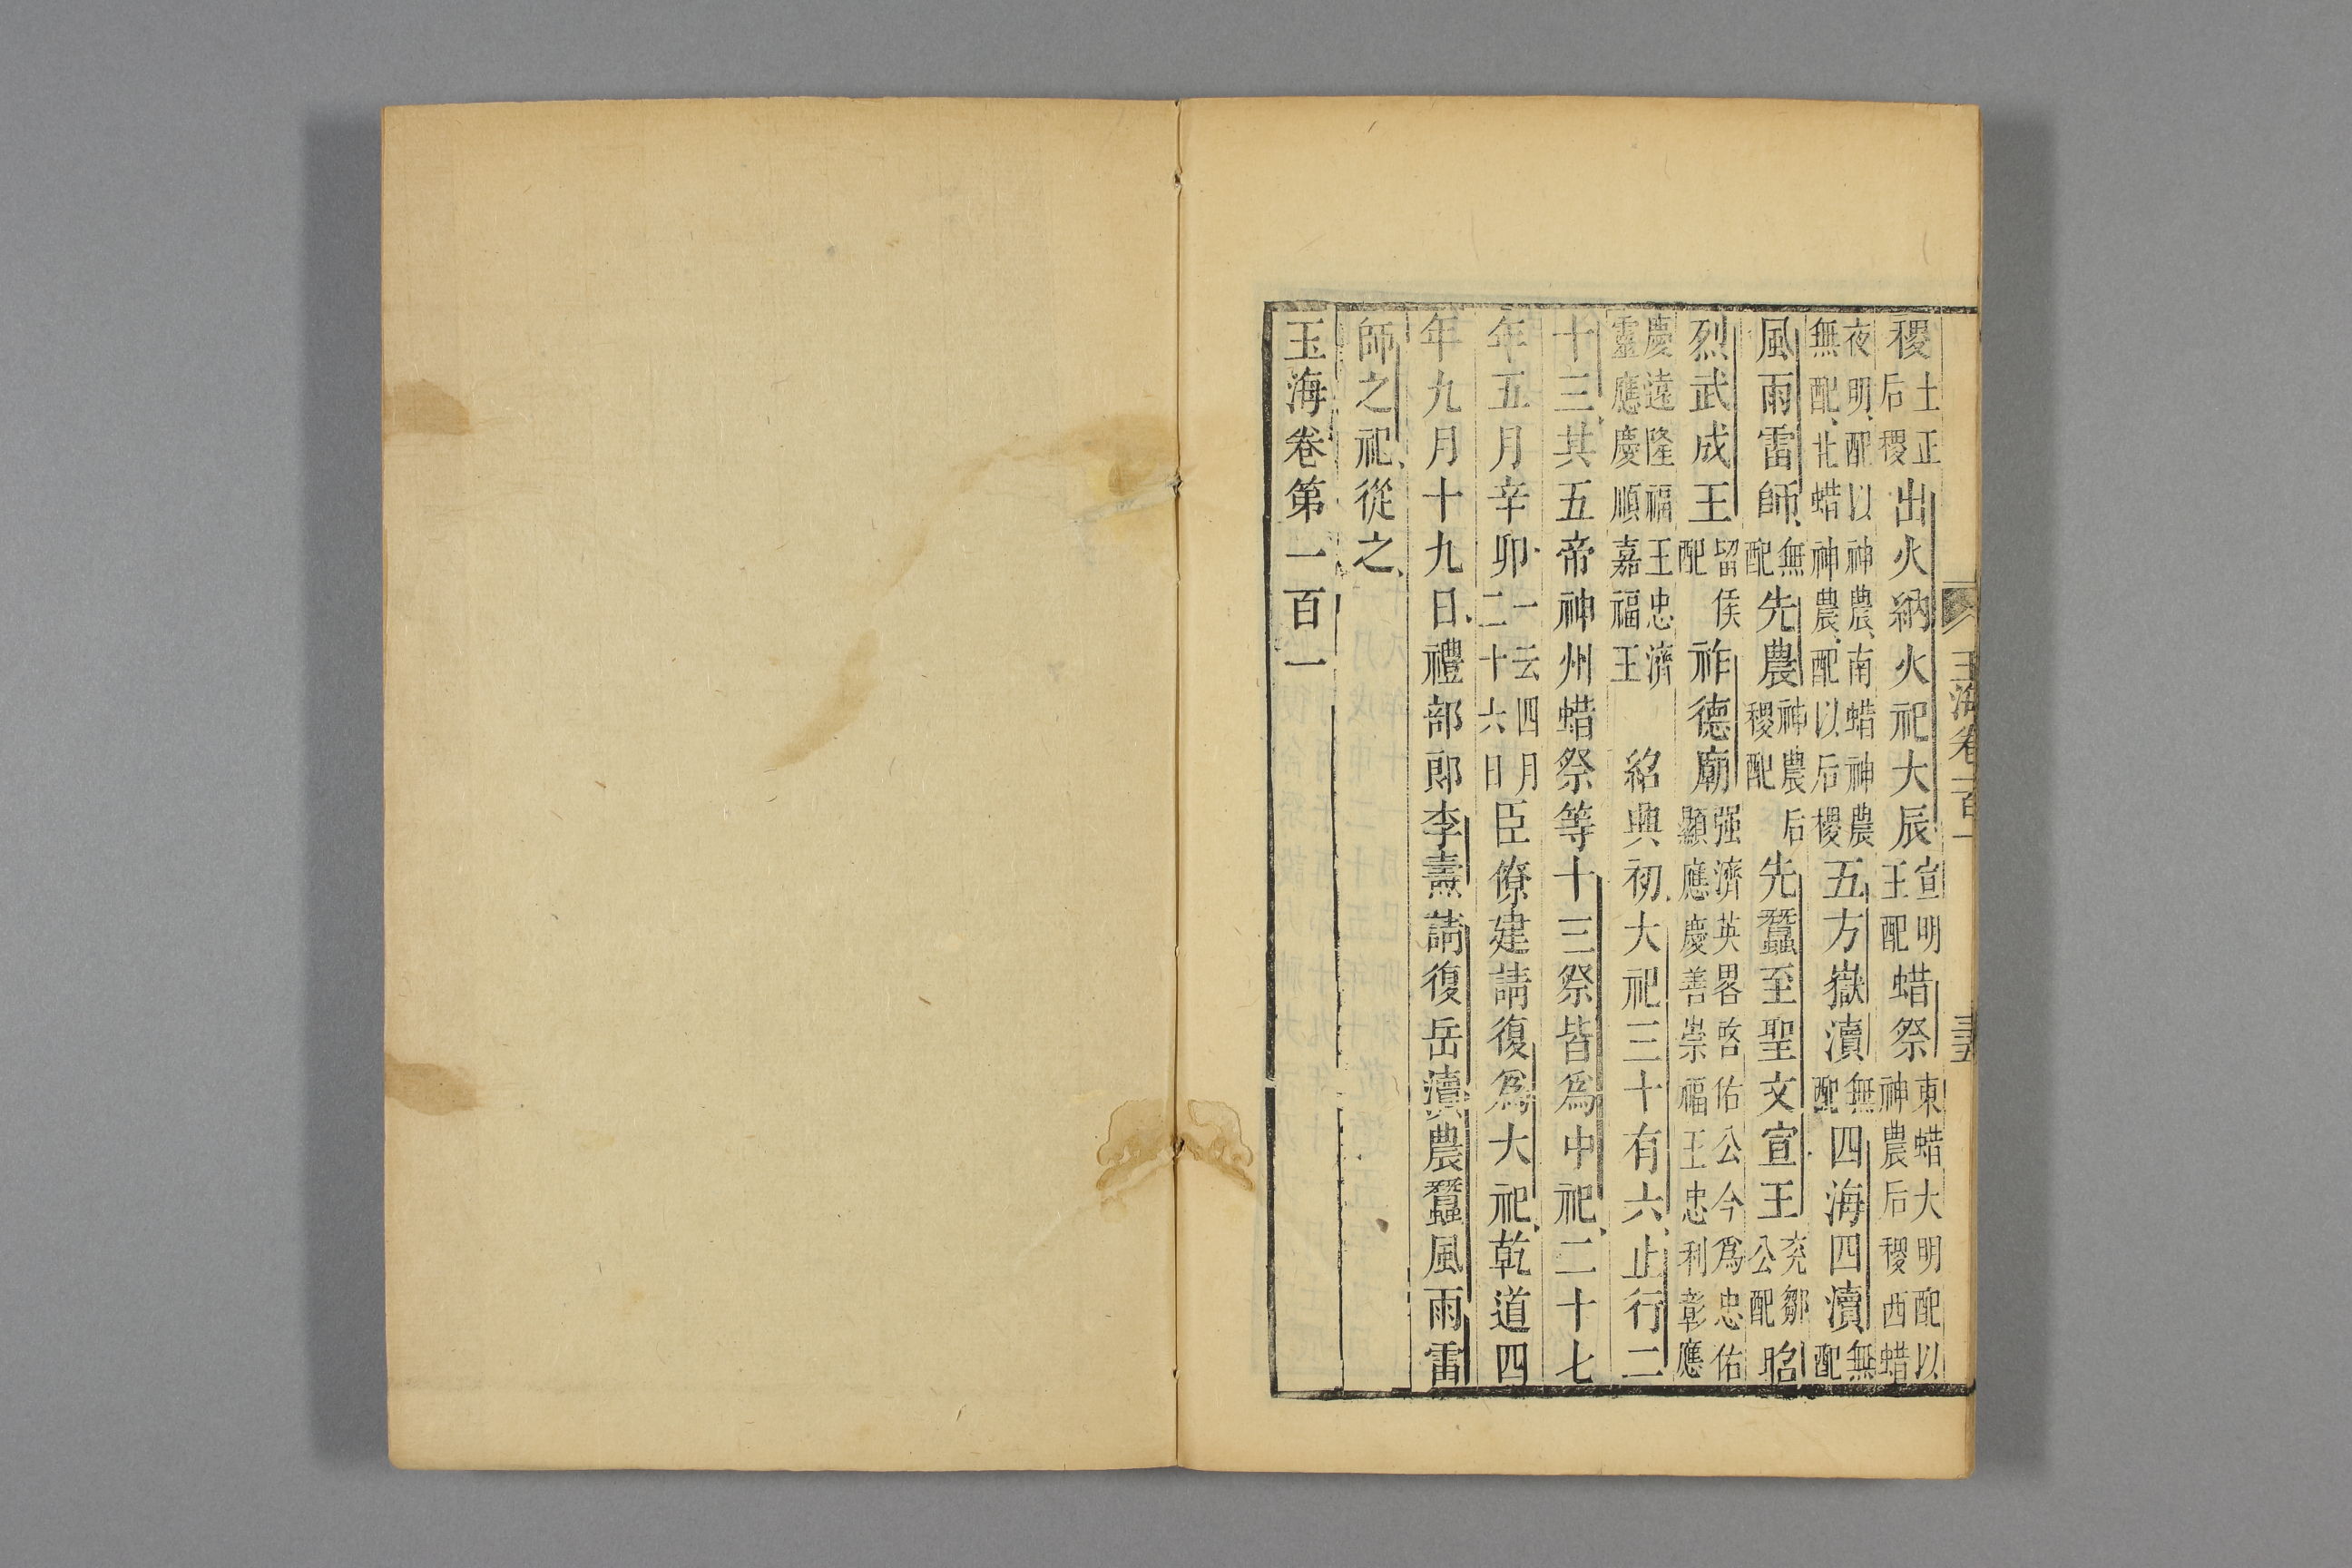 玉海卷一百一
稷土正后稷出火納火祀大辰宣明王配蜡祭東蜡大明配以神農后稷西蜡
夜明、配以神農、南蜡神農無配、北蜡神農、配以后稷五方嶽瀆無配四海四瀆無配
風雨雷師、無配先農神農后稷配先蠶至聖文宣王兗鄒公配昭
烈武成王留侯配祚德廟强濟英畧啓佑公今爲忠佑顯應慶善崇福王忠利彰應
慶遠隆福王忠濟靈應慶順嘉福王紹興初、大祀三十有六、止行二
十三、其五帝神州蜡祭等十三祭皆爲中祀、二十七
年五月辛卯、一云四月二十六日臣僚建請復爲大祀、乾道四
年九月十九日、禮部郎李燾請復岳瀆農蠶風雨雷
師之祀、從之、
玉海卷第一百一